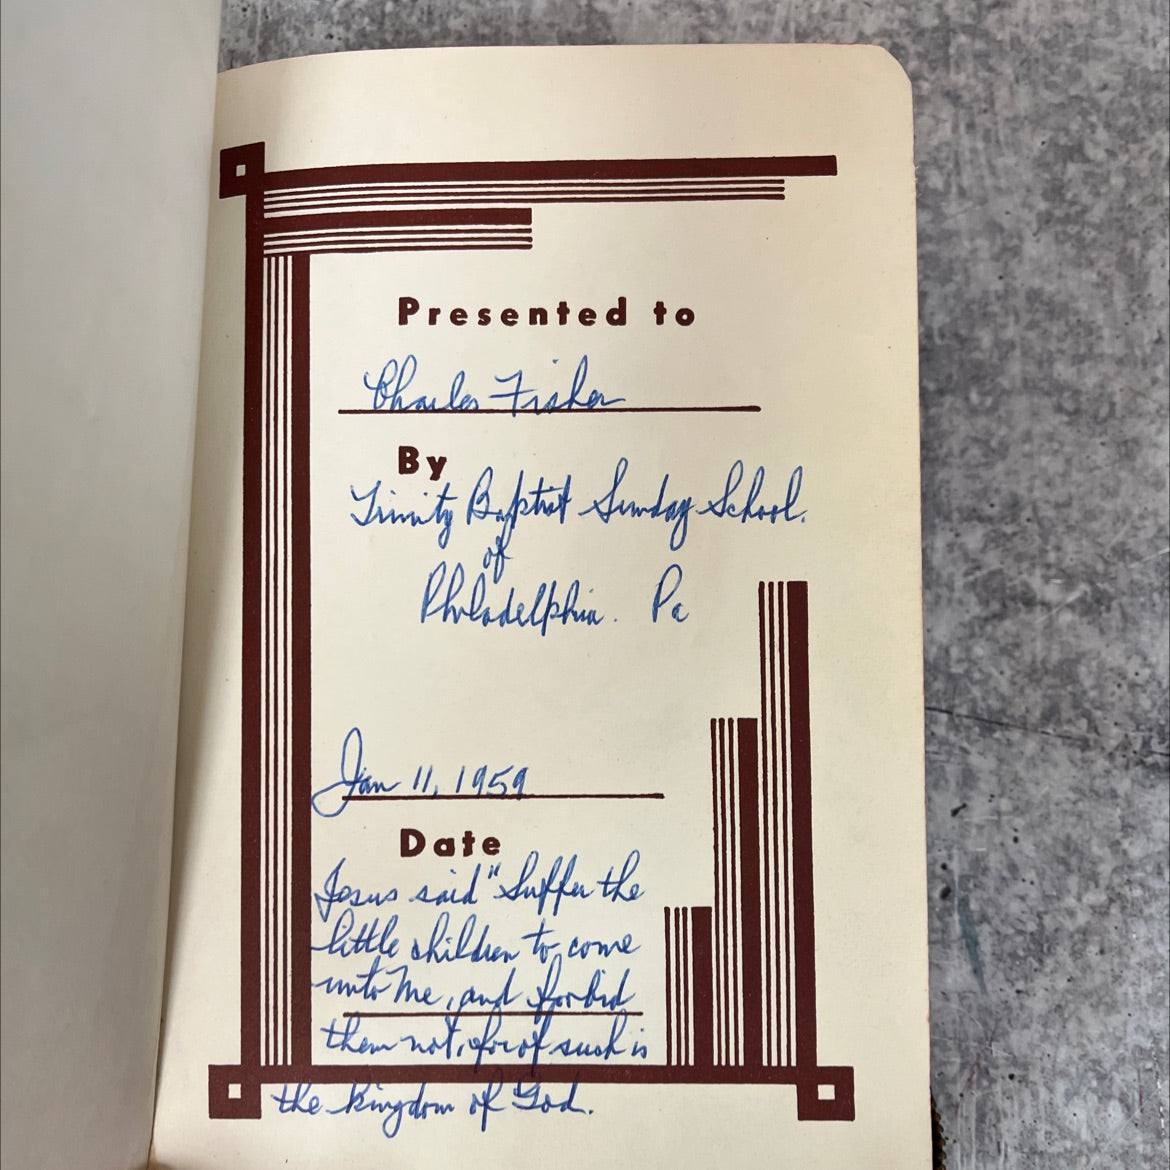 Presented to
Charles Fisher
By
Trinity Baptist Sunday School.
of
Philadelphia. Pa
Jan 11, 1959
Date
Jesus said "Suffer the
little children to come
unto Me, and forbid
them not, for of such is
the kingdom of God.